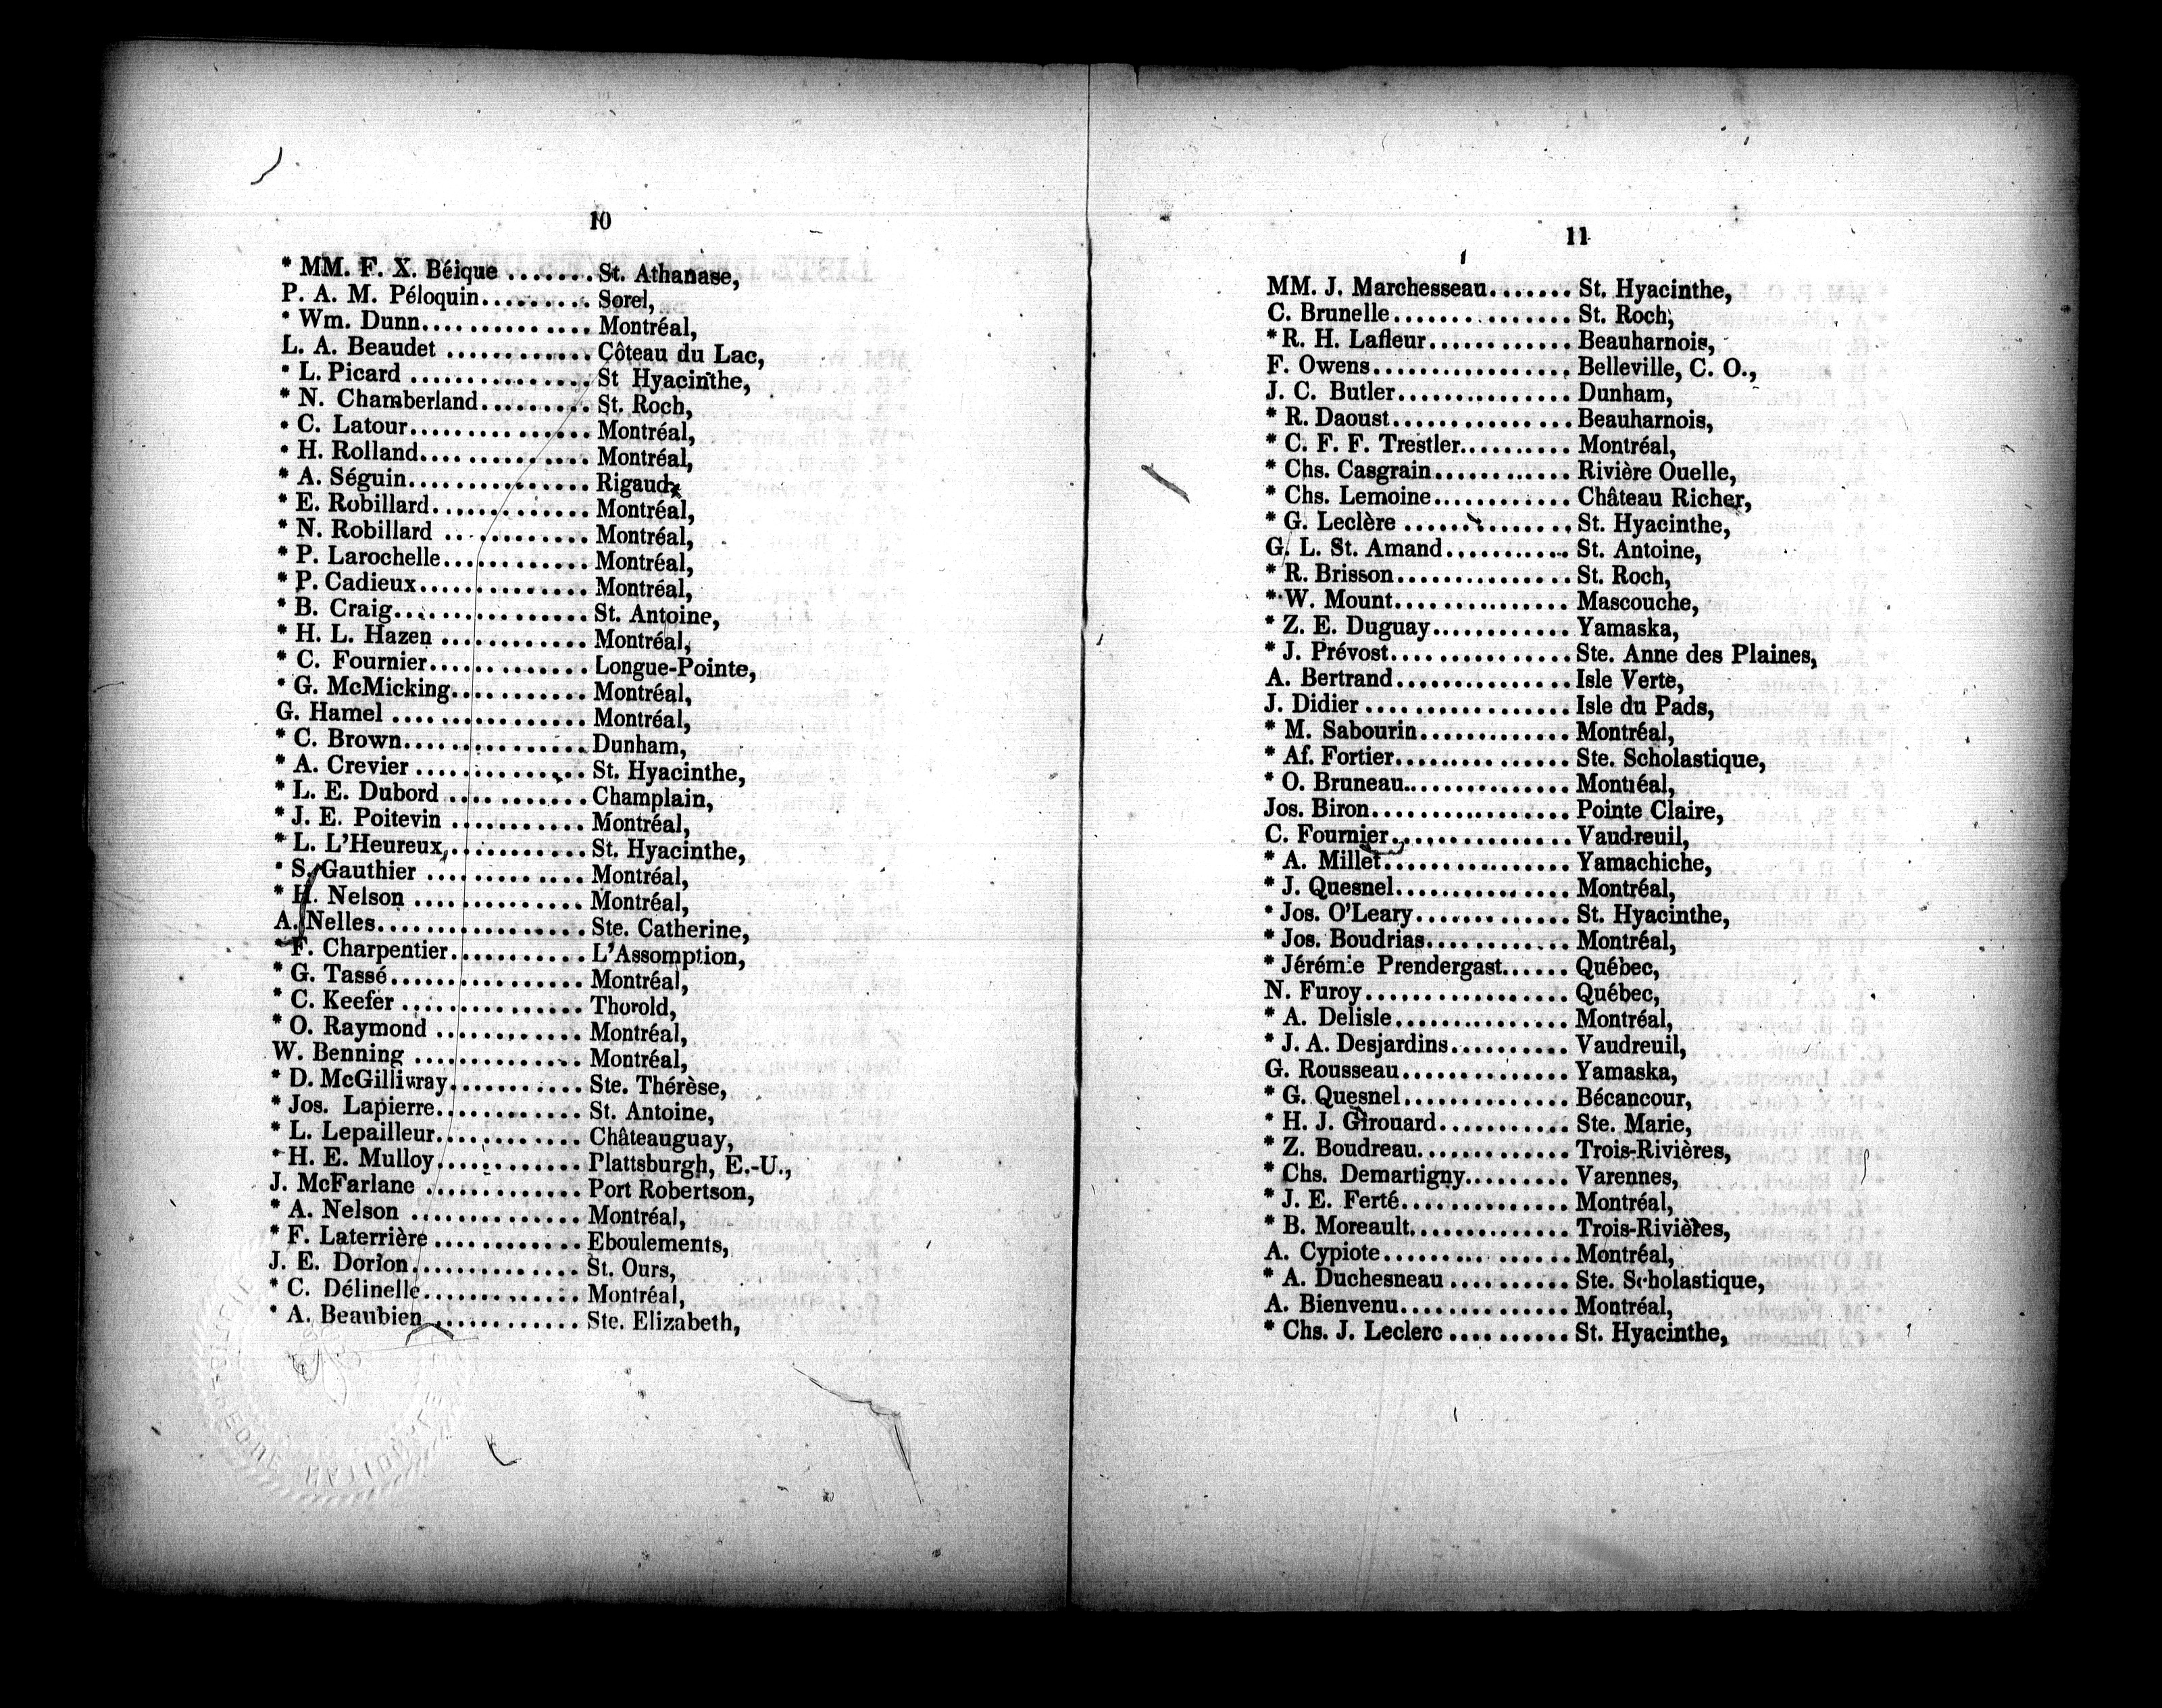 10
* MM. F. X. Béique ....... St. Athanase,
P. A. M. Péloquin......... Sorel,
* Wm. Dunn............... Montréal,
L. A. Beaudet ............ Côteau du Lac,
* L. Picard ............... St Hyacinthe,
* N. Chamberland......... St. Roch,
* C. Latour............... Montréal,
* H. Rolland.............. Montréal,
* A. Séguin............... Rigaud,
* E. Robillard............. Montréal,
* N. Robillard ............ Montréal,
* P. Larochelle............ Montréal,
* P. Cadieux.............. Montréal,
* B. Craig................ St. Antoine,
* H. L. Hazen ............ Montréal,
* C. Fournier............. Longue-Pointe,
* G. McMicking........... Montréal,
G. Hamel ................ Montréal,
* C. Brown............... Dunham,
* A. Crevier .............. St. Hyacinthe,
* L. E. Dubord ........... Champlain,
* J. E. Poitevin ........... Montréal,
* L. L'Heureux,........... St. Hyacinthe,
* S. Gauthier ............. Montréal,
* H. Nelson .............. Montréal,
A. Nelles.................. Ste. Catherine,
* F. Charpentier........... L'Assomption,
* G. Tassé................ Montréal,
* C. Keefer ............... Thorold,
* O. Raymond ............ Montréal,
W. Benning .............. Montréal,
* D. McGillivray........... Ste. Thérèse,
* Jos. Lapierre............ St. Antoine,
* L. Lepailleur............ Châteauguay,
* H. E. Mulloy............ Plattsburgh, E.-U.,
J. McFarlane ............. Port Robertson,
* A. Nelson .............. Montréal,
* F. Laterrière ............ Eboulements,
J. E. Dorion.............. St. Ours,
* C. Délinelle............. Montréal,
* A. Beaubien ............ Ste. Elizabeth,
11
MM. J. Marchesseau....... St. Hyacinthe,
C. Brunelle................ St. Roch,
* R. H. Lafleur............ Beauharnois,
F. Owens................. Belleville, C. O.,
J. C. Butler............... Dunham,
* R. Daoust............... Beauharnois,
* C. F. F. Trestler.......... Montréal,
* Chs. Casgrain............ Rivière Ouelle,
* Chs. Lemoine............ Château Richer,
* G. Leclère .............. St. Hyacinthe,
G. L. St. Amand........... St. Antoine,
* R. Brisson............... St. Roch,
* W. Mount............... Mascouche,
* Z. E. Duguay............ Yamaska,
* J. Prévost................ Ste. Anne des Plaines,
A. Bertrand............... Isle Verte,
J. Didier .................. Isle du Pads,
* M. Sabourin............. Montréal,
* Af. Fortier............... Ste. Scholastique,
* O. Bruneau.............. Montréal,
Jos. Biron................. Pointe Claire,
C. Fournier................ Vaudreuil,
* A. Millet................ Yamachiche,
* J. Quesnel............... Montréal,
* Jos. O'Leary............. St. Hyacinthe,
* Jos. Boudrias............ Montréal,
* Jérémie Prendergast...... Québec,
N. Furoy.................. Québec,
* A. Delisle............... Montréal,
* J. A. Desjardins.......... Vaudreuil,
G. Rousseau............... Yamaska,
* G. Quesnel.............. Bécancour,
* H. J. Girouard........... Ste. Marie,
* Z. Boudreau............. Trois-Rivières,
* Chs. Demartigny......... Varennes,
* J. E. Ferté............... Montréal,
* B. Moreault.............. Trois-Rivières,
A. Cypiote................ Montréal,
* A. Duchesneau .......... Ste. Scholastique,
A. Bienvenu............... Montréal,
* Chs. J. Leclerc .......... St. Hyacinthe,